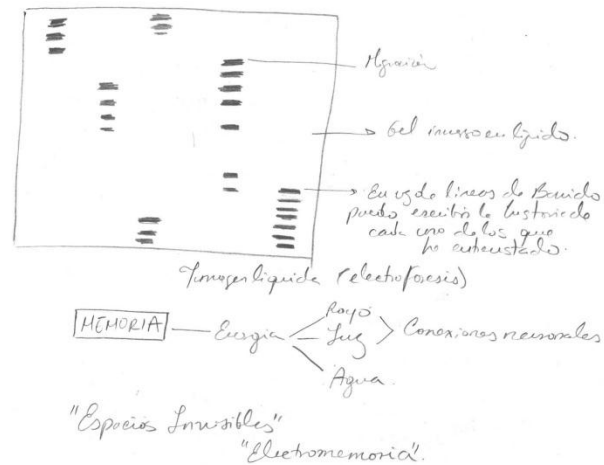 Migración
Gel inmerso en líquido.
En vez de líneas de
puedo escribir la historia de
cada uno de los que
he entrevistado.
Imagen líquida (electroforesis)
MEMORIA
Energía
Rayo
Luz
Agua.
Conexiones neuronales
"Espacios Invisibles"
"Electromemoria".